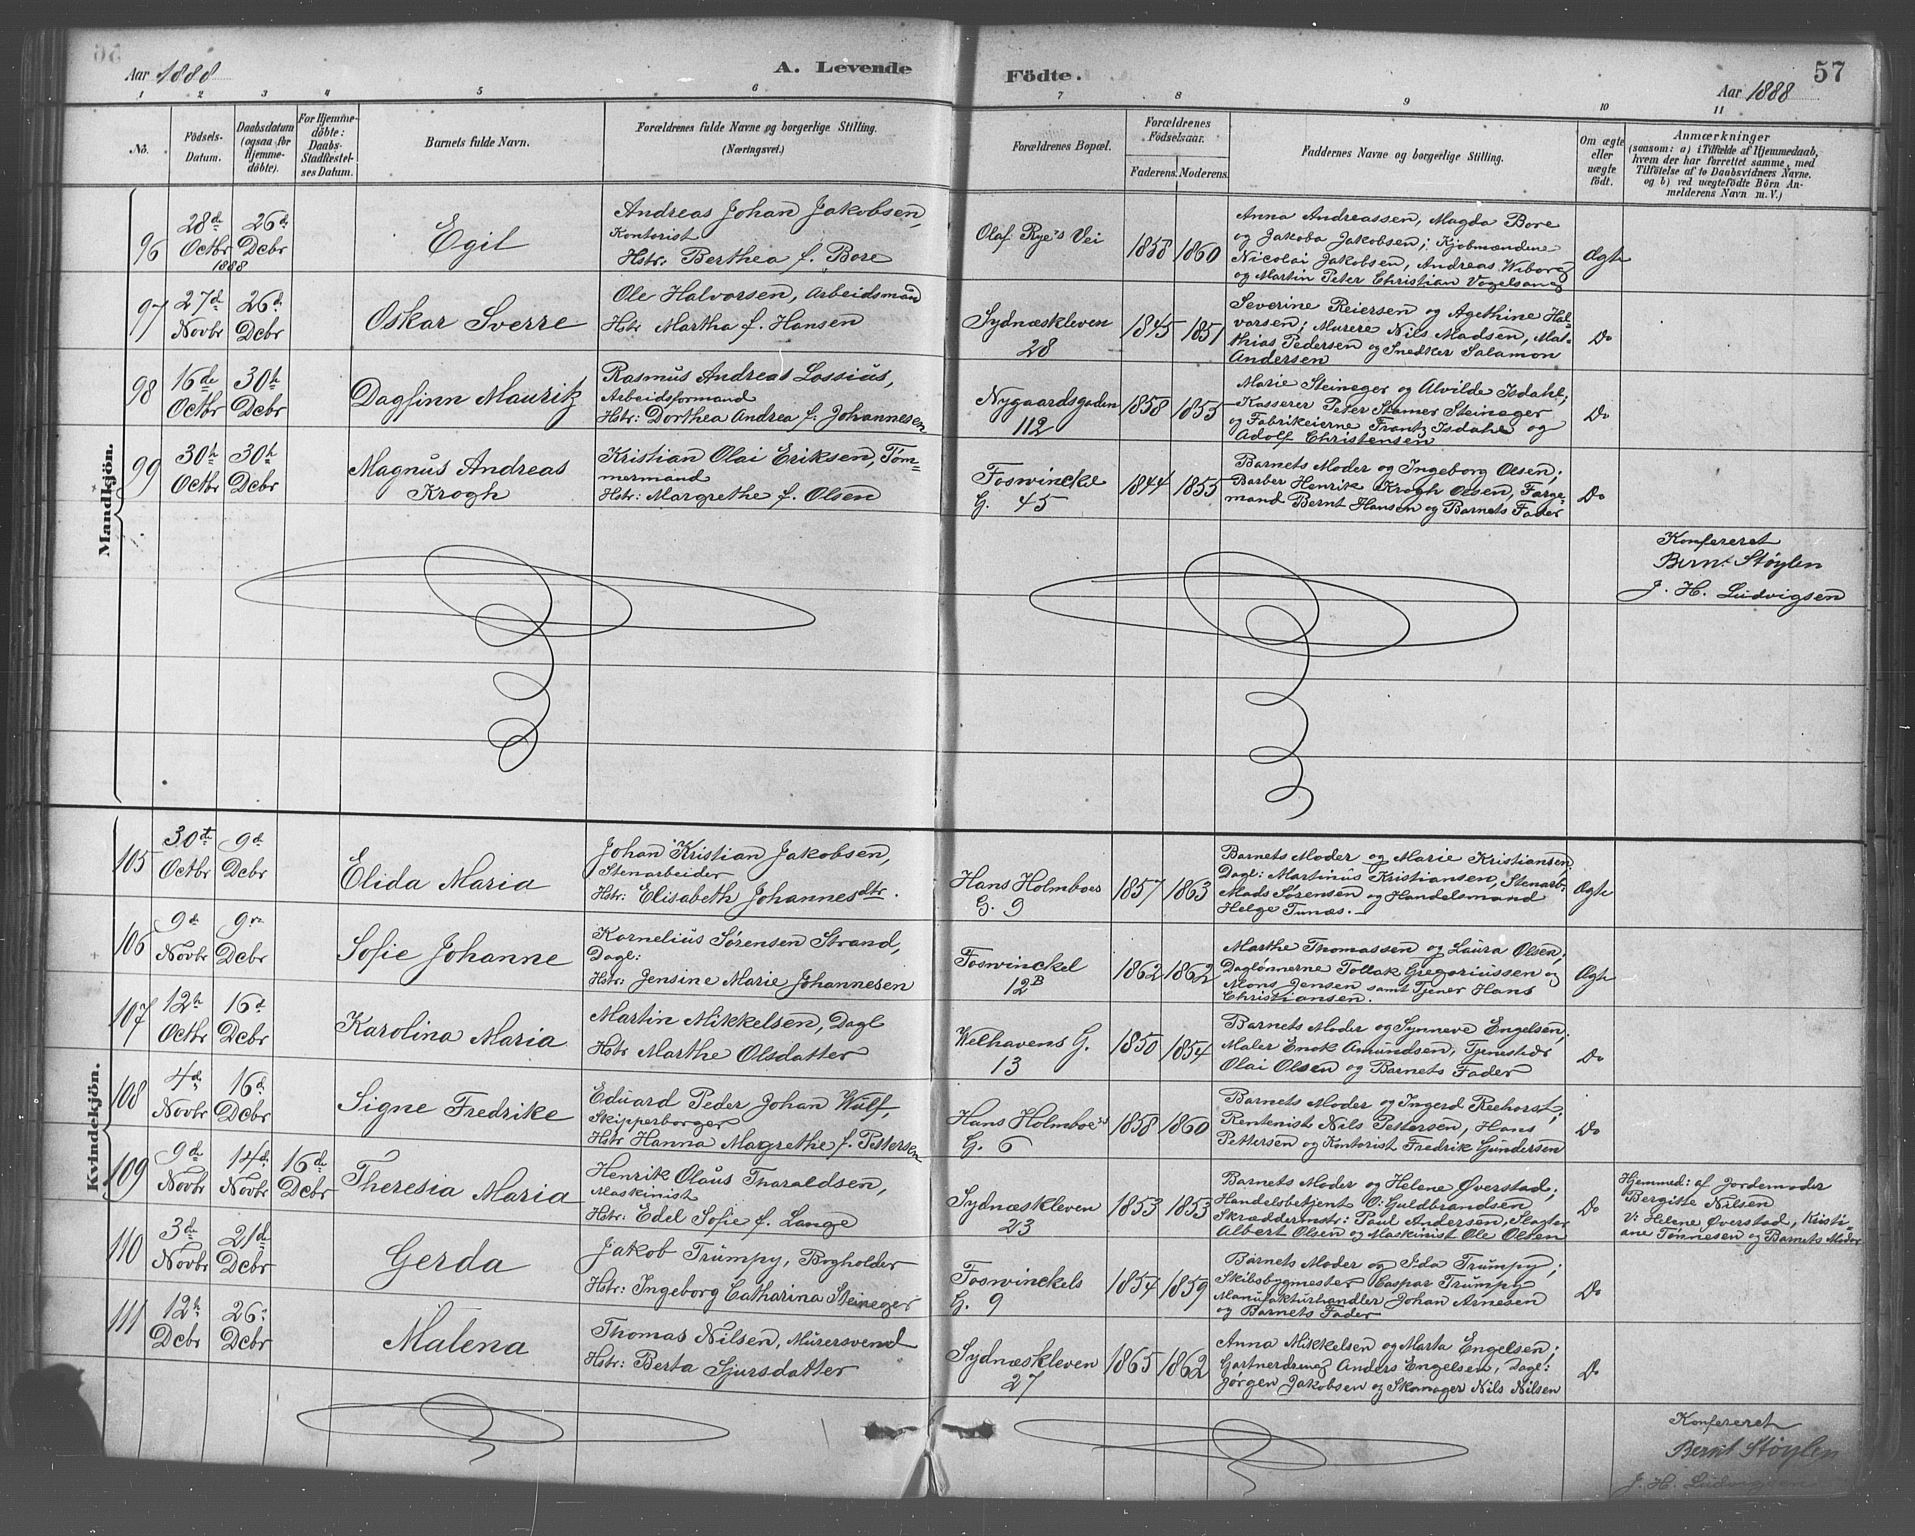 Aar 1888
A. Levende
Födte.
57
Aar 1888
1 2 3 4 5 6 7 8 9 10 11
No.
Födsels-
Datum.
Daabsdatum
(ogsaa for
Hjemme-
döbte).
For Hjemme-
döbte:
Daabs-
Stadfæstel-
ses Datum.
Barnets fulde Navn.
Forældrenes fulde Navne og borgerlige Stilling.
(Næringsvei.)
Forældrenes Bopæl.
Forældrenes
Födselsaar.
Faderens. Moderens.
Faddernes Navne og borgerlige Stilling.
Om ægte
eller
uægte
født.
Anmærkninger
(saasom: a) i Tilfælde af Hjemmedaab,
hvem der har forrettet samme, med
Tilföielse af to Daabsvidners Navne.
og b) ved uægtefödte Börn An-
melderens Navn m. V.)
Mandkjön.
96
28de
Octbr
1888
26de
Dcbr
Egil
Andreas Johan Jakobsen,
Kontorist
Hstr: Berthea f. Bore
Olaf Rye's Vei
1858 1860
Anna Andreassen, Magda Bore
og Jakoba Jakobsen; Kjøbmændene
Nicolai Jakobsen, Andreas Wiborg
og Martin Peter Christian Vogelsang
Ægte
97
27de
Novbr
26de
Dcbr
Oskar Sverre
Ole Halvorsen, Arbeidsmand
Hstr Martha f. Hansen
Sydnæskleven
28
1845 1851
Severine Reiersen og Agethine Hal-
vorsen; Murere Nils Madsen, Mat-
thias Pedersen og Snedker Salamon
Andersen
Do
98
16de
Octbr
30te
Dcbr
Dagfinn Mauritz
Rasmus Andreas Lossius,
Arbeidsformand
Hstr: Dorthea Andrea f. Johannesen
Nygaardsgaden
112
1858 1855
Marie Steineger og Alvilde Isdahl;
Kasserer Peter Stamer Steineger
og Fabrikeierne Frantz Isdahl og
Adolf Christensen
Do
99
30te
Octbr
30te
Dcbr
Magnus Andreas
Krogh
Kristian Olai Eriksen, Tøm-
mermand
Hstr: Margrethe f. Olsen
Foswinckel
G. 45
1844 1855
Barnets Moder og Ingeborg Olsen;
Barber Henrik Krogh Olsen, Farge-
mand Bernt Hansen og Barnets Fader
Do
Konfereret
Bernt Støylen
J. H. Ludvigsen
Kvindekjön.
105
30te
Octbr
9de
Dcbr
Elida Maria
Johan Kristian Jakobsen,
Stenarbeider
Hstr: Elisabeth Johannesdtr.
Hans Holmboes
G. 9
1857 1863
Barnets Moder og Marie Kristiansen;
Dagl: Martinus Kristiansen, Stenarb:
Mads Sørensen og Handelsmand
Helge Tunæs.
Ægte
106
9de
Novbr
9de
Dcbr
Sofie Johanne
Kornelius Sørensen Strand,
Dagl:
Hstr: Jensine Marie Johannesen
Foswinckel
12B
1862 1862
Marthe Thomassen og Laura Olsen;
Daglønnerne Tollak Gregoriussen og
Mons Jensen samt Tjener Hans
Christiansen.
Ægte
107
12te
Octbr
16de
Dcbr
Karolina Maria
Martin Mikkelsen, Dagl
Hstr Marthe Olsdatter
Welhavens G.
13
1850 1854
Barnets Moder og Synneve Engelsen;
Maler Enok Amundsen,
Olai Olsen og Barnets Fader
Do
108
4de
Novbr
16de
Dcbr
Signe Fredrike
Eduard Peder Johan Wulf,
Skipperborger
Hstr Hanna Margrethe f. Petersen
Hans Holmboe's
G. 6
1858 1860
Barnets Moder og Ingerd Reehorst;
Rentenist Nils Pettersen, Hans
Pettersen og Kontorist Fredrik Gundersen
Do
109
9de
Novbr
14de
Novbr
16de
Dcbr
Theresia Maria
Henrik Olaus Tharaldsen,
Maskinist
Hstr: Edel Sofie f. Lange
Sydnæskleven
23
1853 1853
Barnets Moder og Helene Øverstad;
Handelsbetjent O: Guldbrandsen
Skræddermstr: Paul Andersen, Slagter
Albert Olsen og Maskinist Ole Olsen
Do
Hjemmed: af Jordemoder
Bergitte Nilsen
V: Helene Øverstad, Kristi-
ane Tønnesen og Barnets Moder
110
3de
Novbr
21de
Dcbr
Gerda
Jakob Trumpy, Bogholder
Hstr: Ingeborg Catharina Steineger
Foswinckels
G. 9
1854 1859
Barnets Moder og Ida Trumpy;
Skibsbygmester Caspar Trumpy
Manufakturhandler Johan Arnesen
og Barnets Fader
Do
111
12te
Dcbr
26:
Dcbr
Malena
Thomas Nilsen, Murersvend
Hstr: Berta Sjursdatter
Sydnæskleven
27
1865 1862
Anna Mikkelsen og Marta Engelsen;
Gartnerdreng Anders Engelsen, Dagl:
Jørgen Jakobsen og Skomager Nils Nilsen
Do
Konfereret
Bernt Støylen
J. H. Ludvigsen